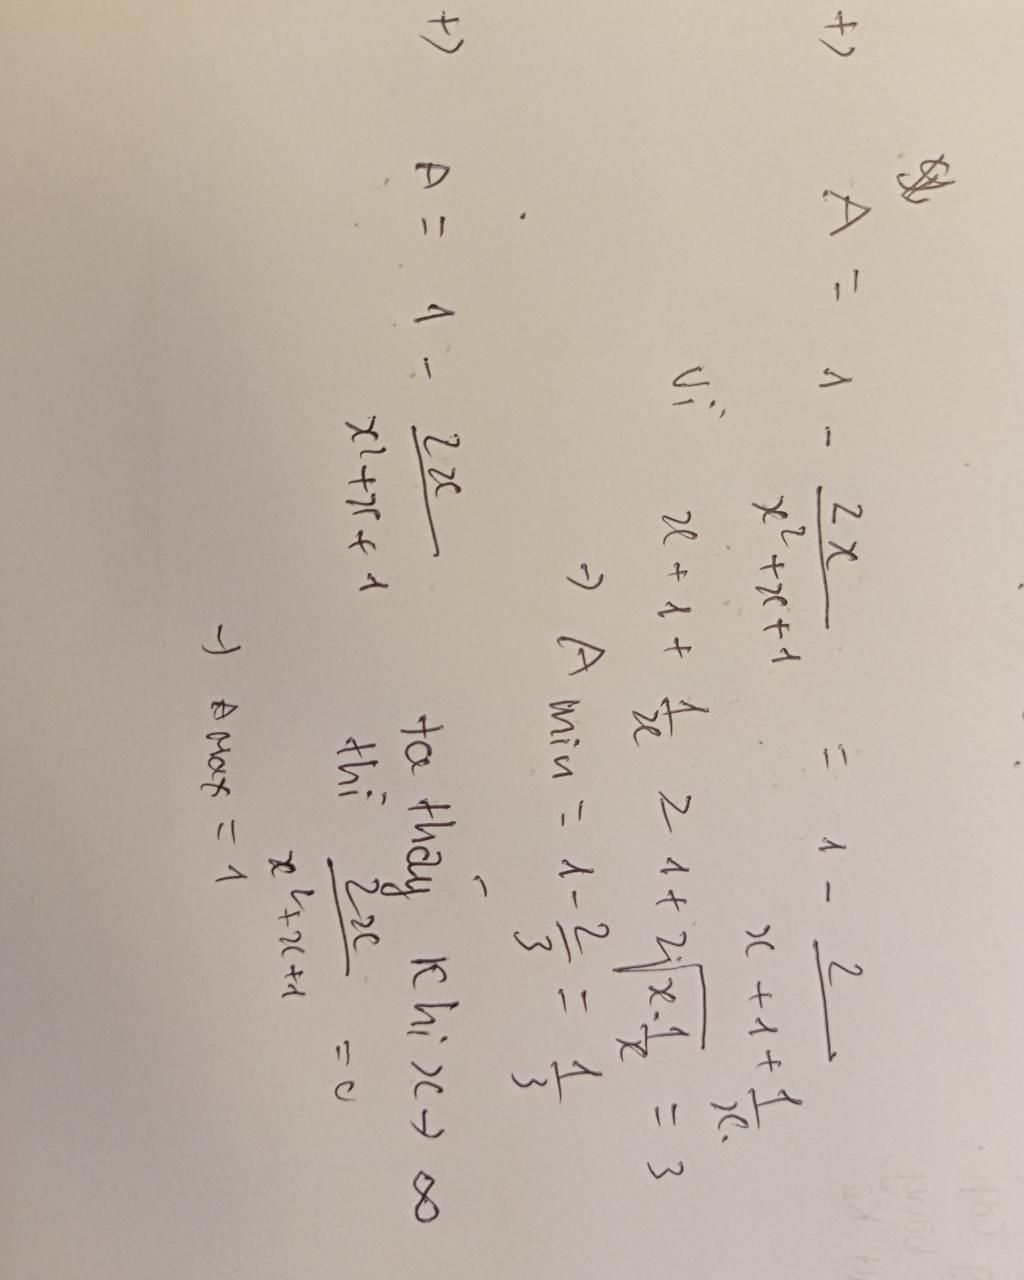 +) A = 1 - 2x / x² + x + 1 = 1 - 2 / x + 1 + 1/x.
Vì x + 1 + 1/x ≥ 1 + 2√x.1/x = 3
→) A min = 1 - 2/3 = 1/3
+) A = 1 - 2x / x² + x + 1 ta thấy khi x → ∞
thì 2x / x² + x + 1 = 0
→) A max = 1